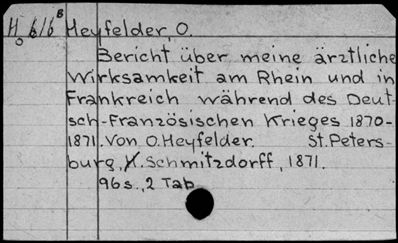 H 616 B Heyfelder, O.
o
Bericht über meine ärztliche
Wirksamkeit am Rhein und in
Frankreich während des Deut-
sch-Französischen Krieges 1870-
1871. Von O. Heyfelder. St. Peters-
burg, H. Schmitzdorff, 1871.
96 s., 2 Tab